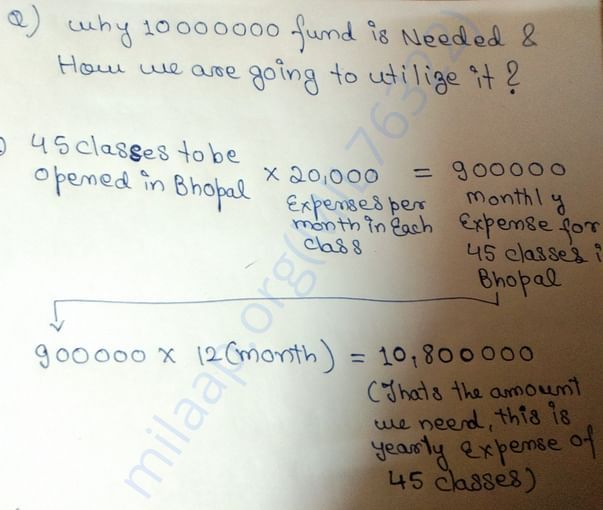 Q) Why 10000000 fund is Needed &
How we are going to utilize it?
45 classes to be
opened in Bhopal × 20,000 = 900000
Expenses per
month in Each
class
monthly
Expense for
45 classes i
Bhopal
900000 × 12 (month) = 10,800000
(Thats the amount
we need, this is
yearly Expense of
45 classes)
milaap.org(MIL76322)